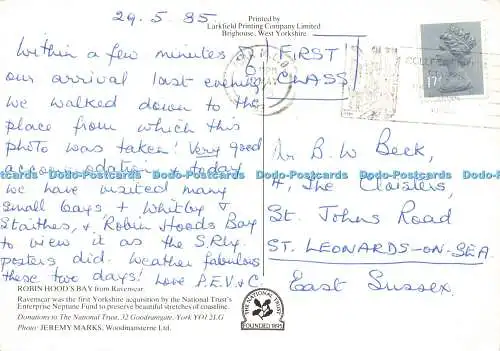 29.5.85
Printed by
Larkfield Printing Company Limited
Brighouse, West Yorkshire
Within a few minutes of
our arrival last evening
we walked down to the
place from which this
photo was taken! Very good
accommodation & today
we have visited many
small bays & Whitby &
Staithes, & Robin Hoods Bay
to view it as the S.Rly.
posters did. Weather fabulous
these two days! Love P.E.V. & C.
ROBIN HOOD'S BAY from Ravenscar.
Ravenscar was the first Yorkshire acquisition by the National Trust's
Enterprise Neptune Fund to preserve beautiful stretches of coastline.
Donations to The National Trust, 32 Goodramgate, York YO1 2LG
Photo: JEREMY MARKS, Woodmansterne Ltd.
FIRST
CLASS
17
Mr B. W Beck,
4, The Cloisters,
St. Johns Road
ST. LEONARDS-ON-SEA.
East Sussex.
THE NATIONAL TRUST
FOUNDED 1895
Postcards Dodo-Postcards Dodo-Postcards Dodo-Postcards Dodo-Postcards Dodo-Postcards